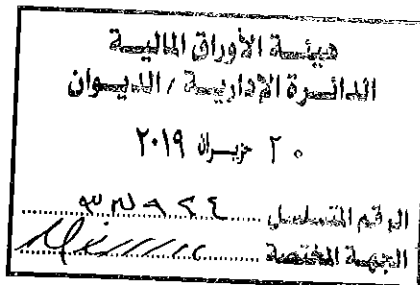 هيئة الأوراق المالية
الدائرة الإدارية / الديوان
٢٠ حزيران ٢٠١٩
الرقم المتسلسل
الجهة المختصة